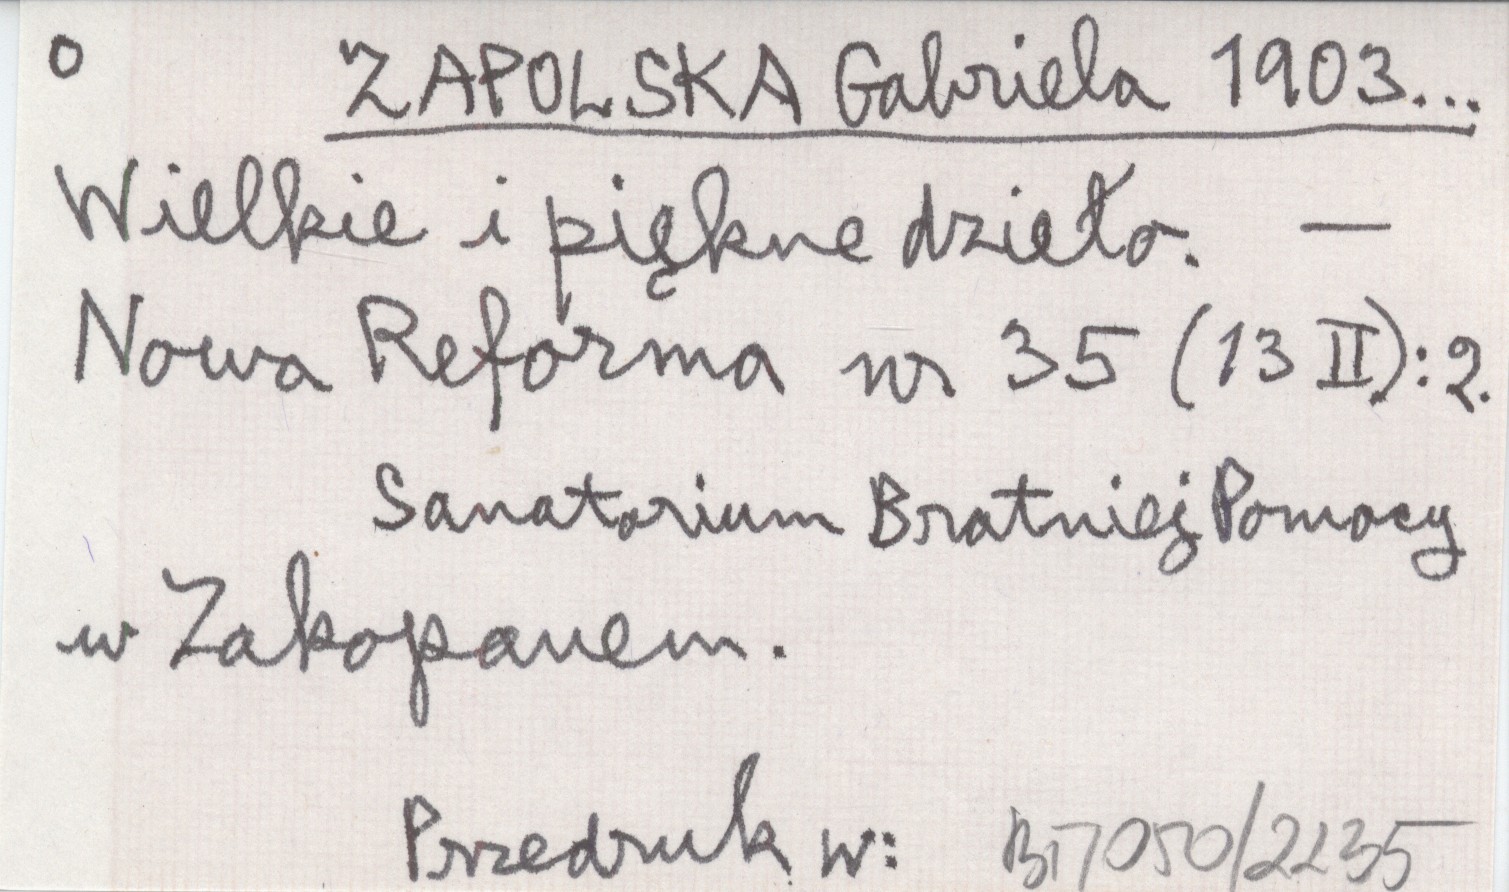 o ZAPOLSKA Gabriela 1903...
Wielkie i piękne dzieło. —
Nowa Reforma nr 35 (13 II): 2.
Sanatorium Bratniej Pomocy
w Zakopanem.
Przedruk w: